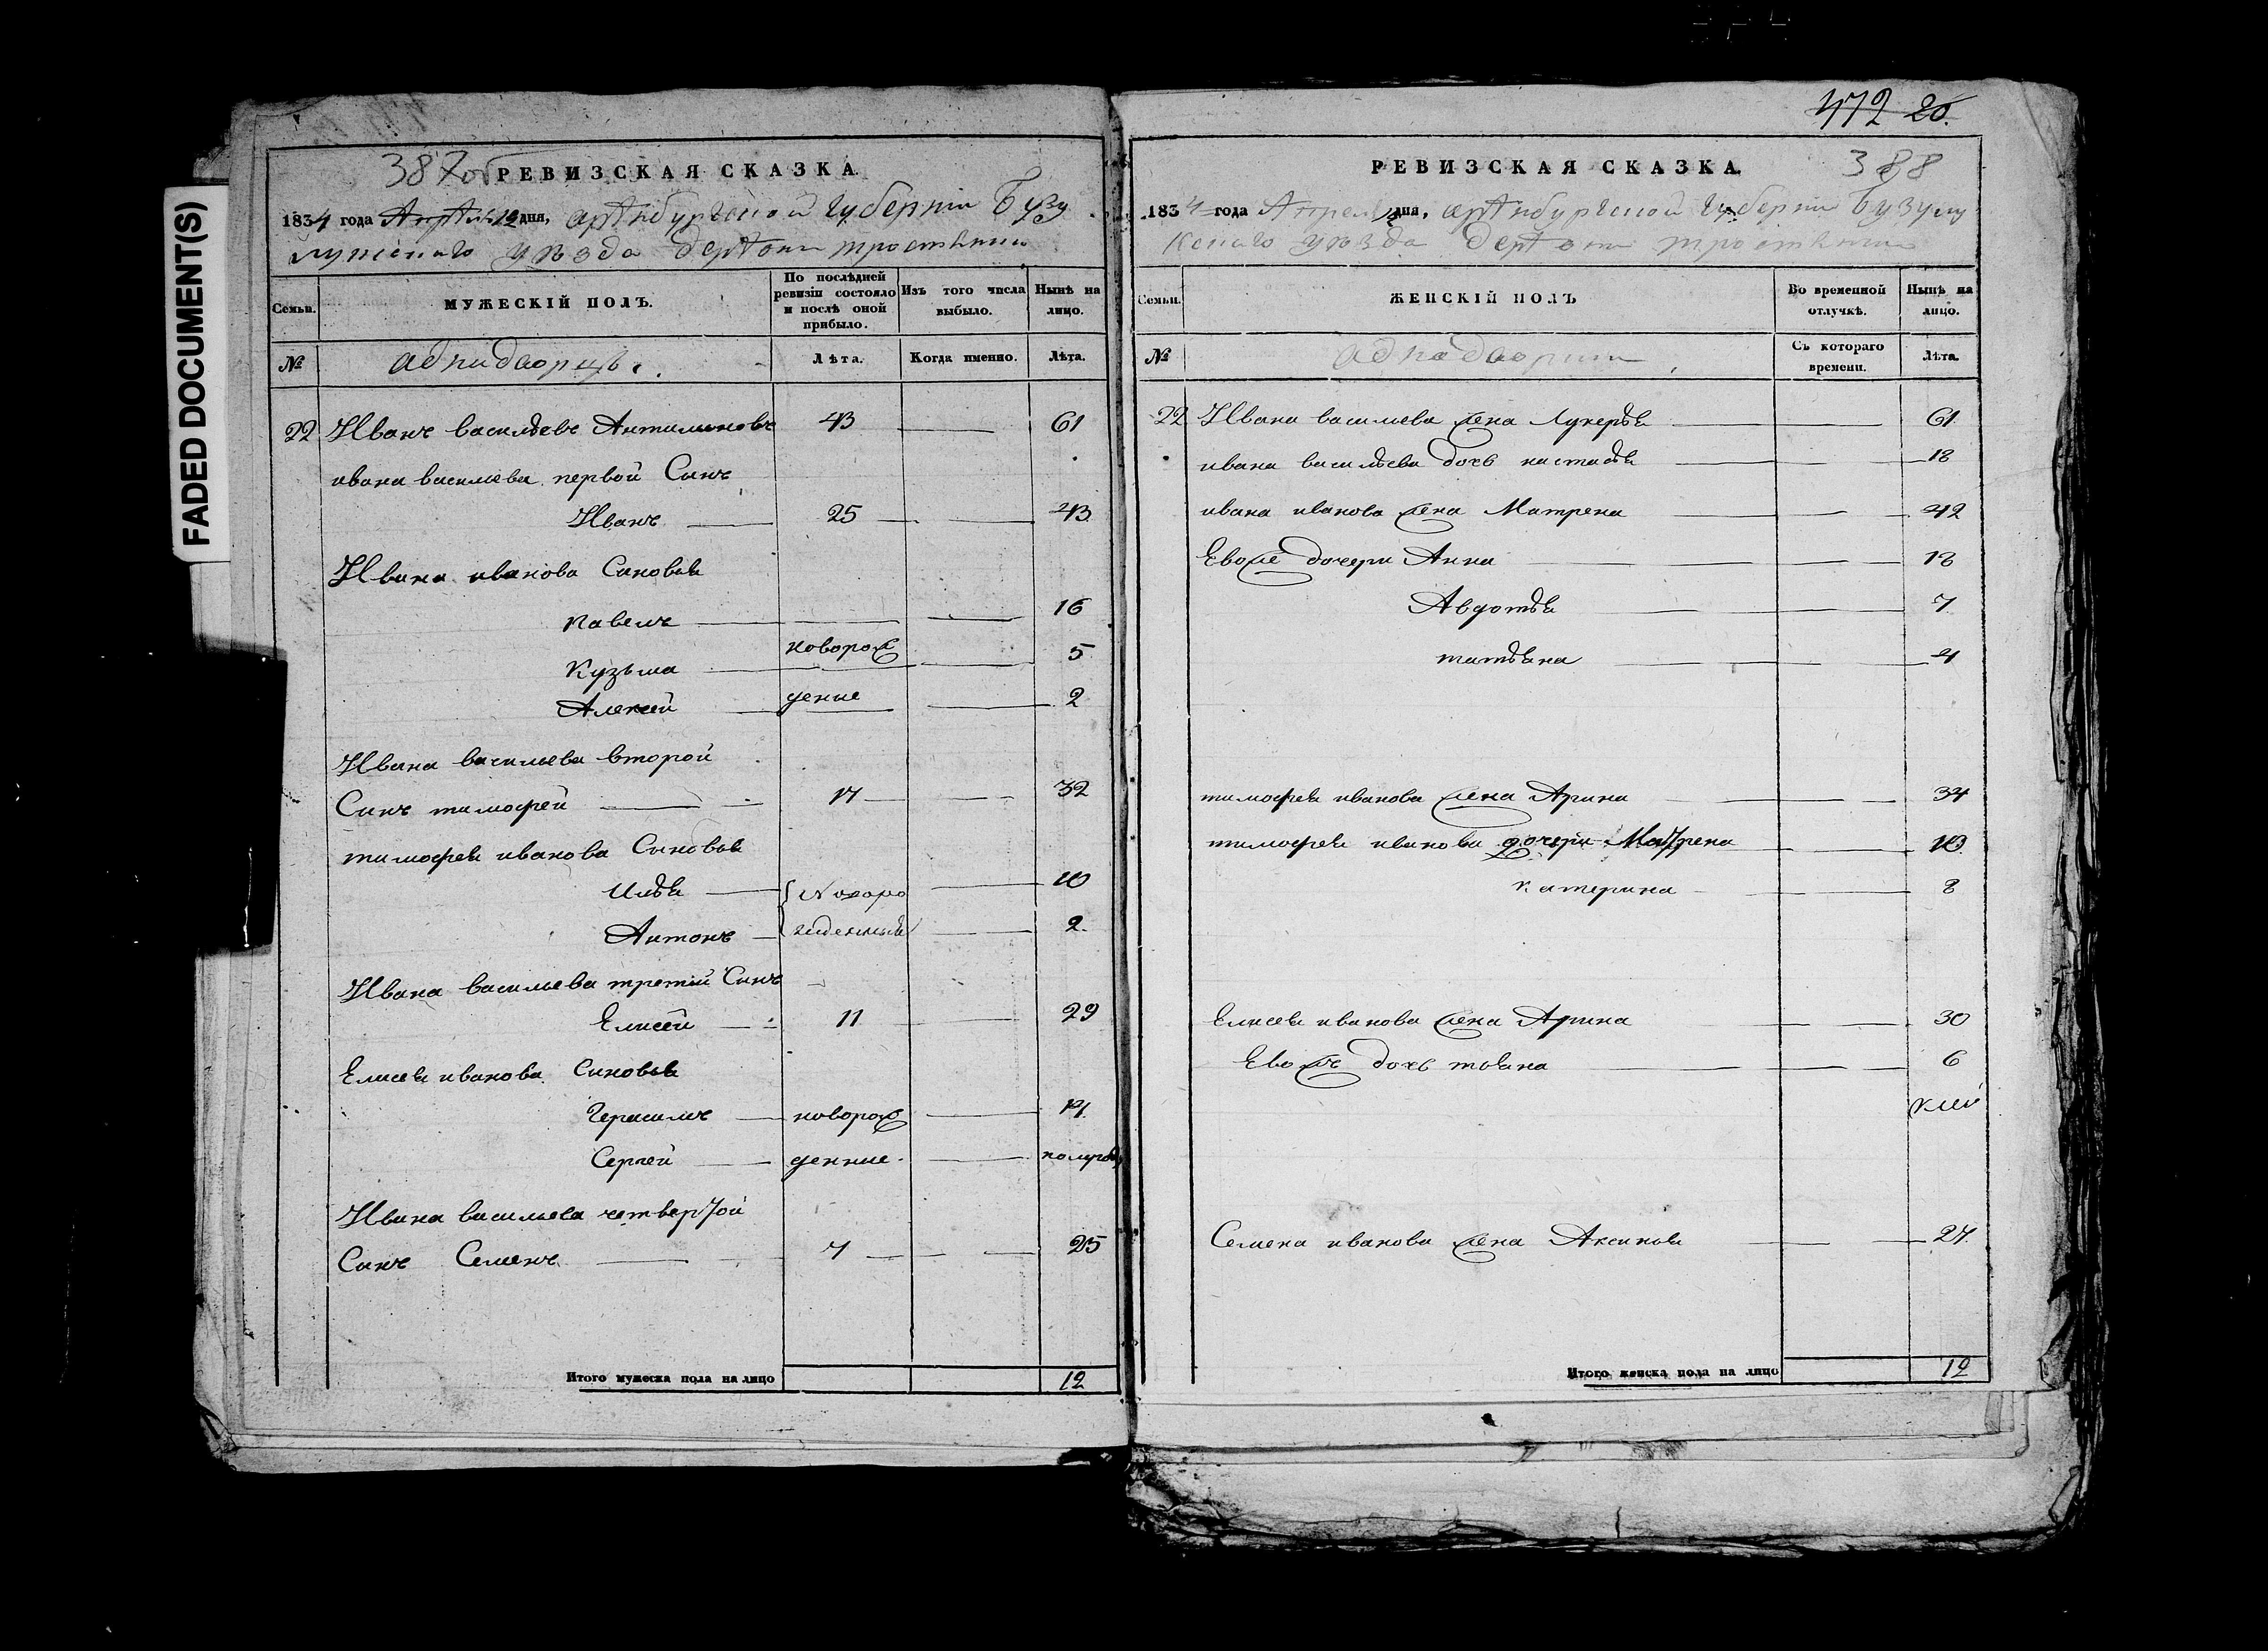 FADED DOCUMENT(S)
387об
РЕВИЗСКАЯ СКАЗКА.
1834 года Апреля 12 дня, аренбургской губернiи Бузу
лукскаго уезда деревни тростянки
Семьи.
МУЖЕСКІЙ ПОЛЪ.
По послѣдней ревизіи состояло и послѣ оной прибыло.
Изъ того числа выбыло.
Нынѣ на лицо.
№
аднадворцы.
Лѣта.
Когда именно.
Лѣта.
22 Иванъ васильевъ Антимоновъ 43 61
ивана васильева первой Сынъ
Иванъ 25 43
Ивана иванова Сыновья
павелъ 16
Кузьма новорож 5
Алексей деные 2
Ивана васильева второй
Сынъ тимофей 14 32
тимофея иванова Сыновья
Илья 10
Антонъ 2.
Ивана васильева третий Сынъ
Елисей 11 29
Елисея иванова Сыновья
Герасимъ новорож 4
Сергей денные полгода
Ивана васильева четвертой
Сынъ Семенъ 7 25
Итого мужеска пола на лицо 12
472 20.
РЕВИЗСКАЯ СКАЗКА.
388
1834 года Апреля дня, аренбургской губернiи Бузулу
кскаго уезда деревни тростянки
Семьи.
ЖЕНСКІЙ ПОЛЪ
Во временной отлучкѣ.
Нынѣ на лицо.
№
аднадворцы
Съ котораго времени.
Лѣта.
22 Ивана васильева жена Лукерья 61
ивана васильева дочь настасья 18
ивана иванова жена Матрена 42
Евоже дочери Анна 18
Авдотья 7
татьяна 4
тимофея иванова жена Арина 34
тимофея иванова дочери Матрена 10
катерина 8
Елисея иванова жена Арина 30
Евожъ дочь 6
Семена иванова жена Аксинья 24
Итого женска пола на лицо 12